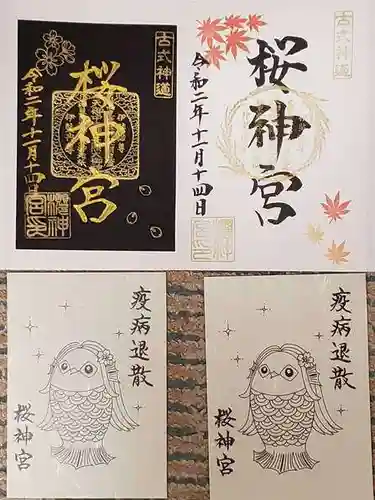 古式神道
桜神宮
令和二年十二月十四日
古式神道
桜神宮
令和二年十二月十四日
疫病退散
桜神宮
疫病退散
桜神宮